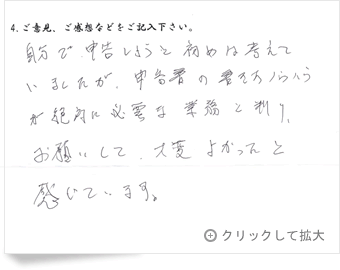 4.ご意見、ご感想などをご記入下さい。
自分で申告しようと初めは考えて
いましたが、申告書の書き方
が絶対に必要な業務と判り、
お願いして、大変よかったと
感じています。
クリックして拡大